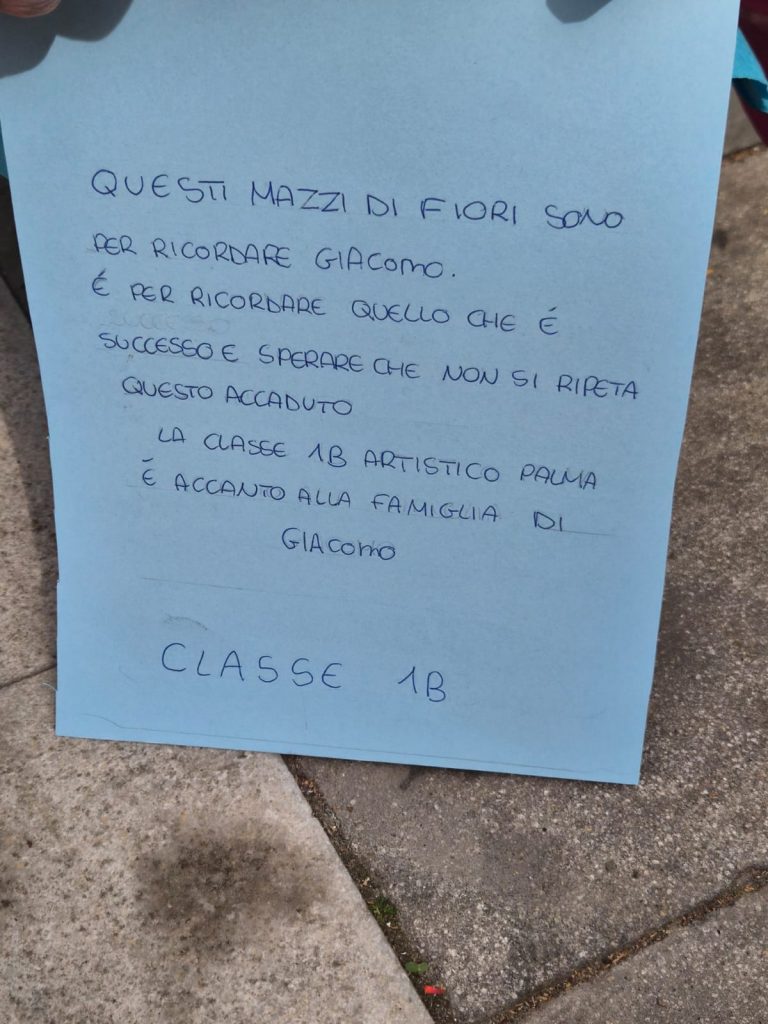 QUESTI MAZZI DI FIORI SONO
PER RICORDARE GIACOMO.
É PER RICORDARE QUELLO CHE É
SUCCESSO E SPERARE CHE NON SI RIPETA
QUESTO ACCADUTO
LA CLASSE 1B ARTISTICO PALMA
É ACCANTO ALLA FAMIGLIA DI
GIACOMO
CLASSE 1B